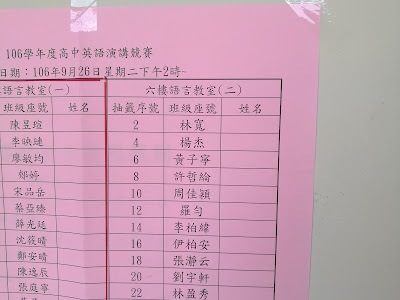 106學年度高中英語演講競賽
日期：106年9月26日星期二下午2時
語言教室(一) 六樓語言教室(二)
班級座號 姓名 抽籤序號 班級座號 姓名
陳昱瑄 2 林寬
李映縺 4 楊杰
廖敏均 6 黃子寧
鄭婷 8 許哲綸
宋品岳 10 周佳穎
蔡亞臻 12 羅勻
薛光廷 14 李柏緯
沈筱晴 16 伊柏安
鄭安晴 18 張瀞云
陳逸辰 20 劉宇軒
張庭寧 22 林盈秀